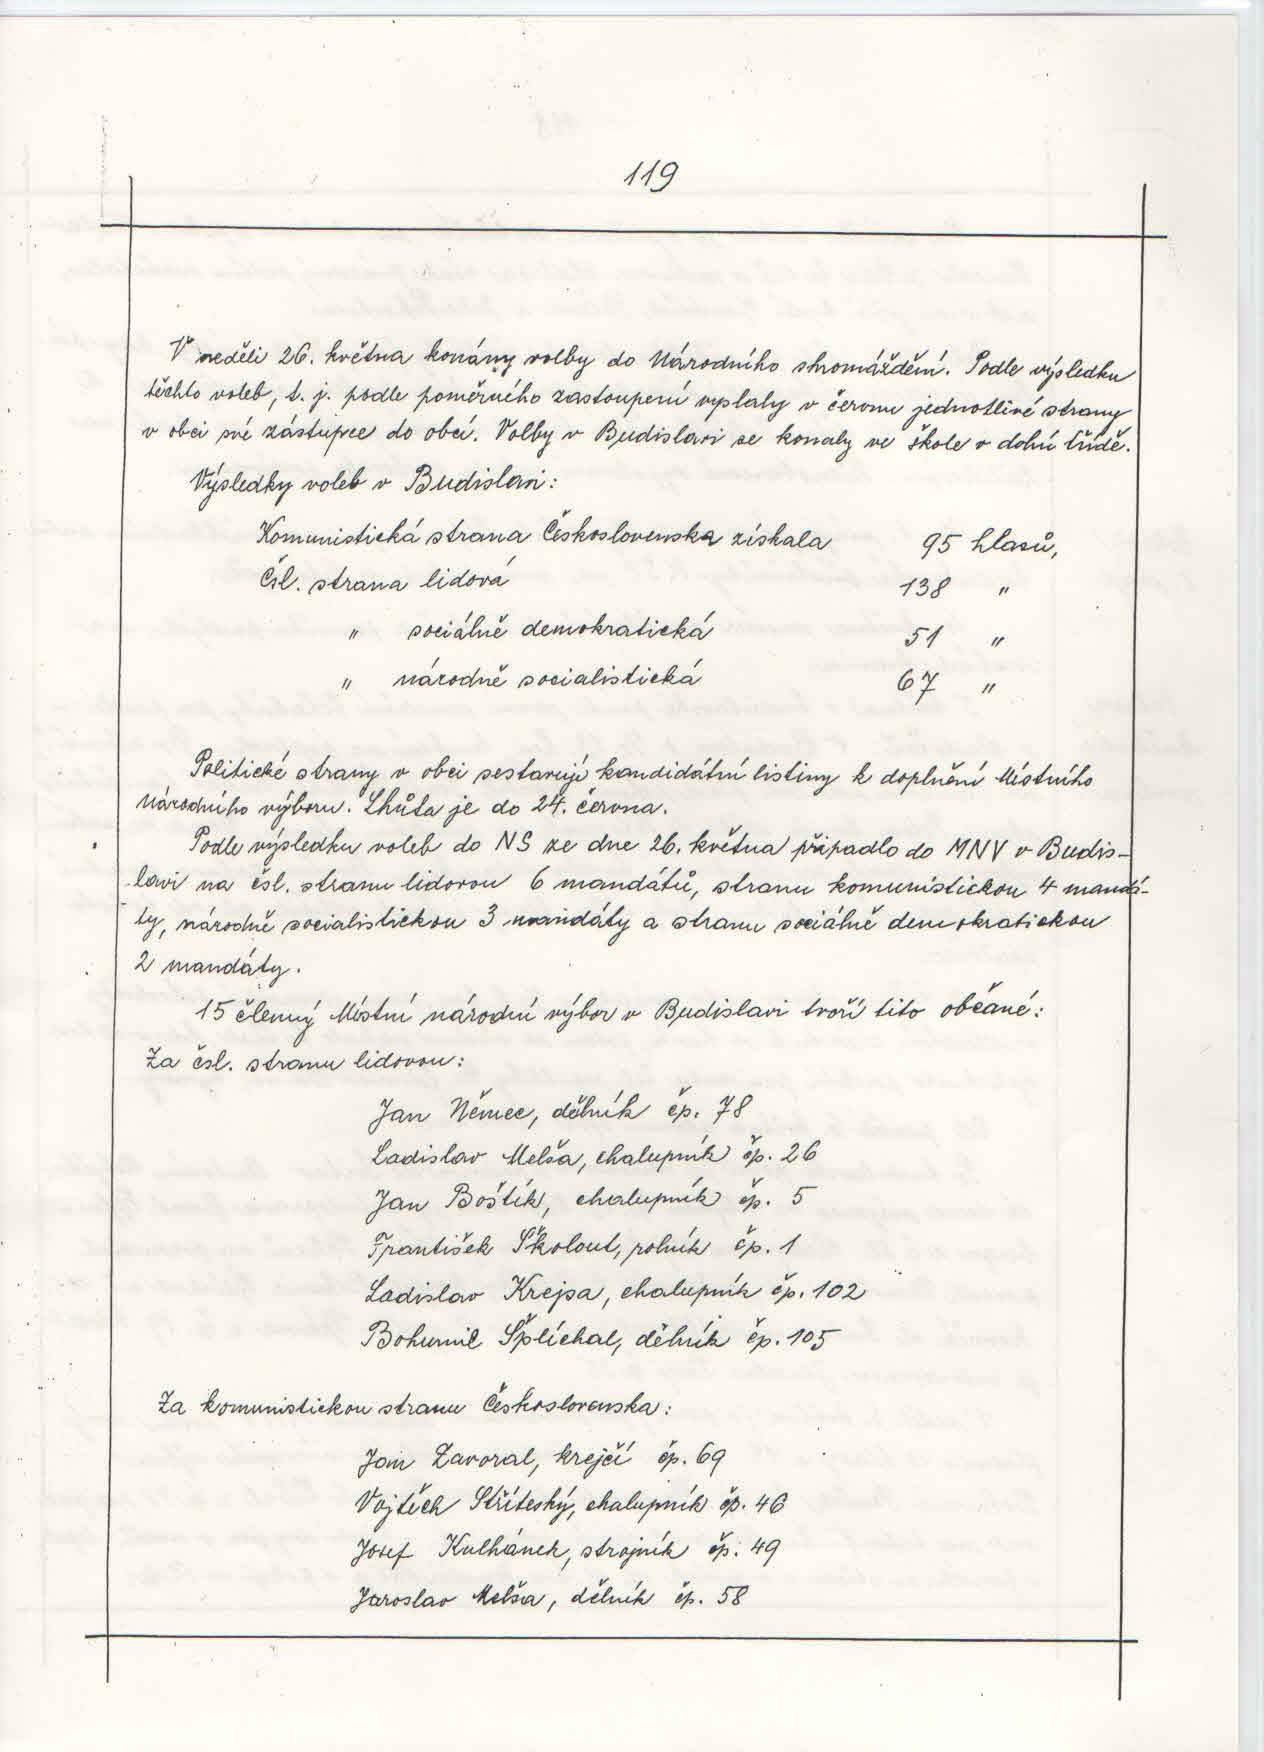 119
V neděli 26. května konány volby do Národního shromáždění. Podle výsledku
těchto voleb, t. j. podle poměrného zastoupení vyslaly v červnu jednotlivé strany
v obci své zástupce do obcí. Volby v Budislavi se konaly ve škole v dolní třídě.
Výsledky voleb v Budislavi:
Komunistická strana Československa získala 95 hlasů,
Čsl. strana lidová 138 "
" sociálně demokratická 51 "
" národně socialistická 67 "
Politické strany v obci sestavují kandidátní listiny k doplnění Místního
Národního výboru. Lhůta je do 24. června.
Podle výsledku voleb do NS ze dne 26. května připadlo do MNV v Budis-
lavi na čsl. stranu lidovou 6 mandátů, stranu komunistickou 4 mandá-
ty, národně socialistickou 3 mandáty a stranu sociálně demokratickou
2 mandáty.
15 členný Místní národní výbor v Budislavi tvoří tito občané:
Za čsl. stranu lidovou:
Jan Němec, dělník čp. 78
Ladislav Melša, chalupník čp. 26
Jan Boštík, chalupník čp. 5
František Školout, rolník čp. 1
Ladislav Krejsa, chalupník čp. 102
Bohumil Šplíchal, dělník čp. 105
Za komunistickou stranu Československa:
Jan Zavoral, krejčí čp. 69
Vojtěch Stříteský, chalupník čp. 46
Josef Kulhánek, strojník čp. 49
Jaroslav Melša, dělník čp. 58